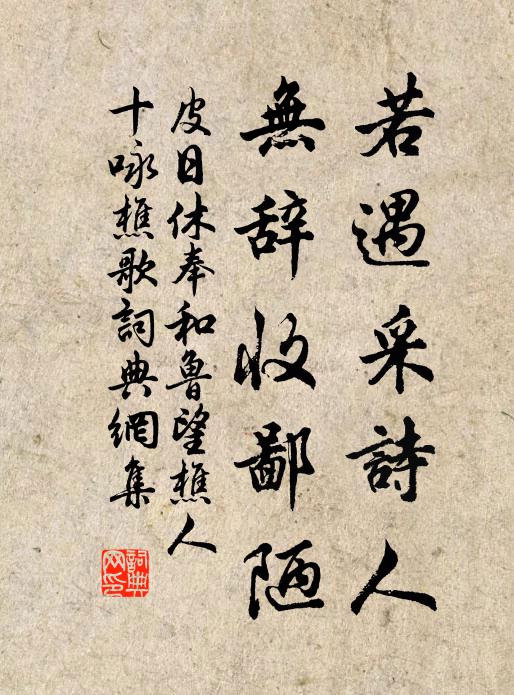 若遇采詩人
無辞收鄙陋
皮日休奉和鲁望樵人
十咏樵歌詞典網集
詞典网印